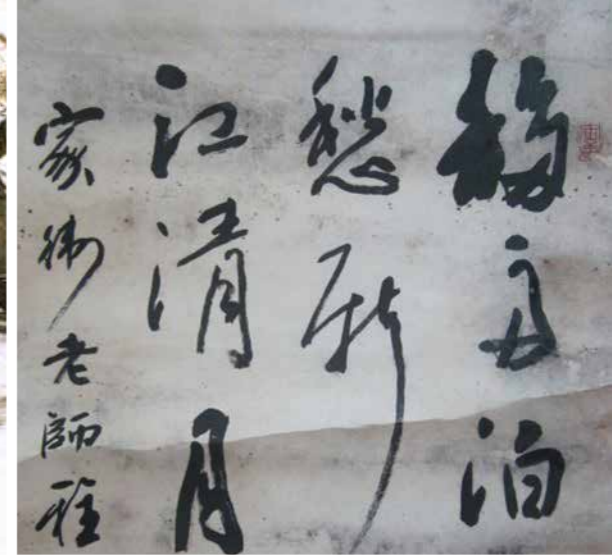 移舟泊
愁新
江清月
家老師雅